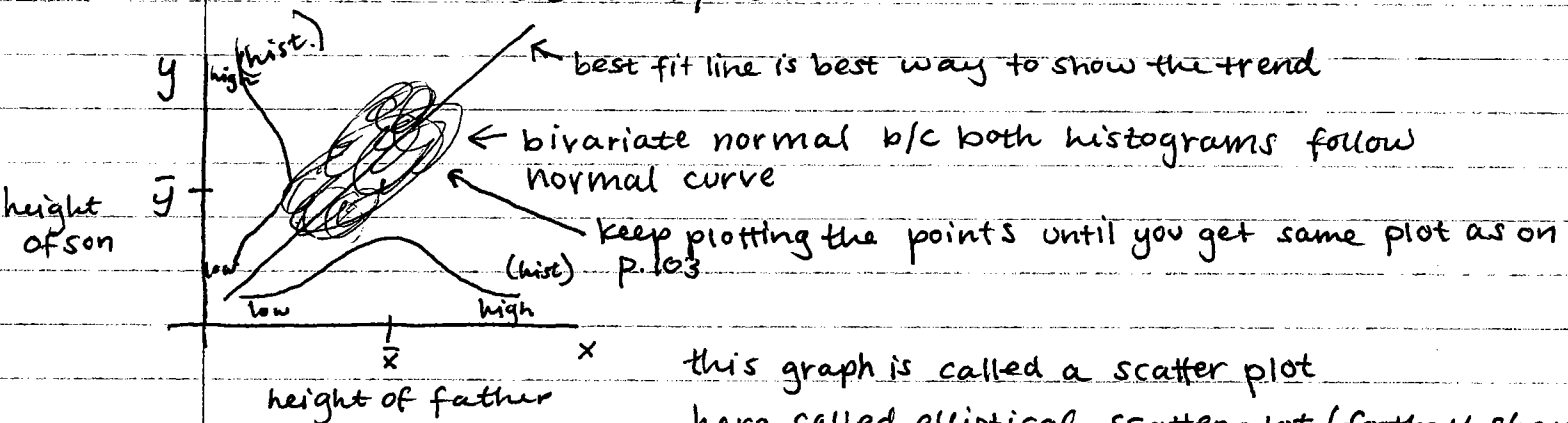 (hist.)
y
high
best fit line is best way to show the trend
bivariate normal b/c both histograms follow
normal curve
ȳ
height
of son
keep plotting the points until you get same plot as on
p. 103
low
(hist)
low
high
x̄
x
height of father
this graph is called a scatter plot
here called elliptical scatter